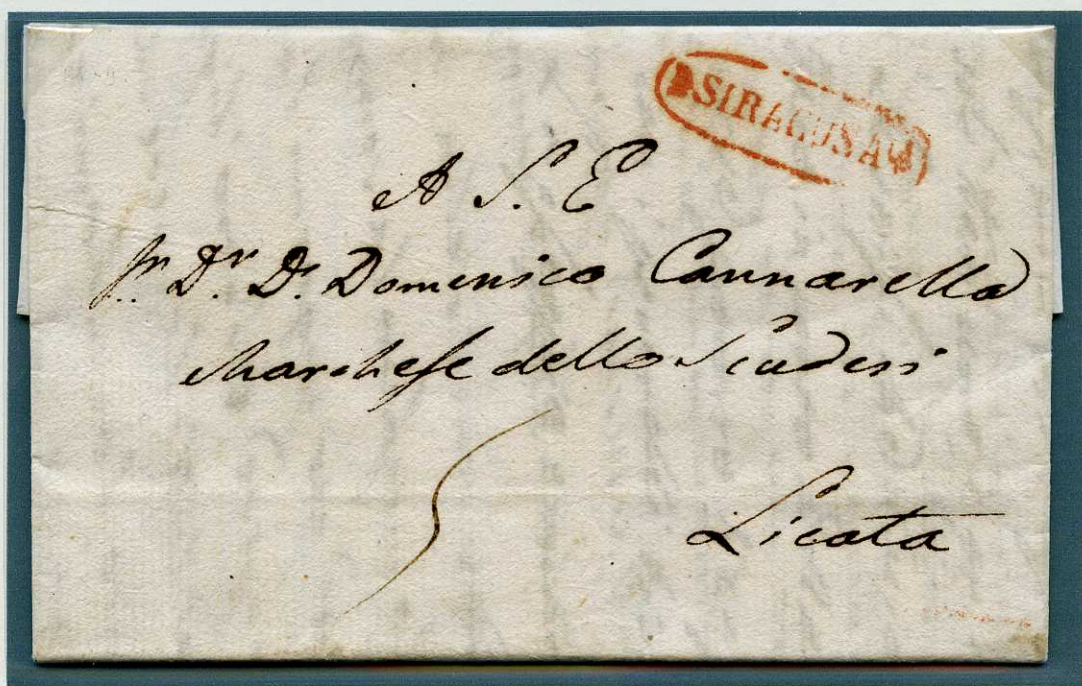 SIRAGUSA
A S. E
Sr. Dr. D. Domenico Cannarella
Marchese dello Scuderi
5
Licata